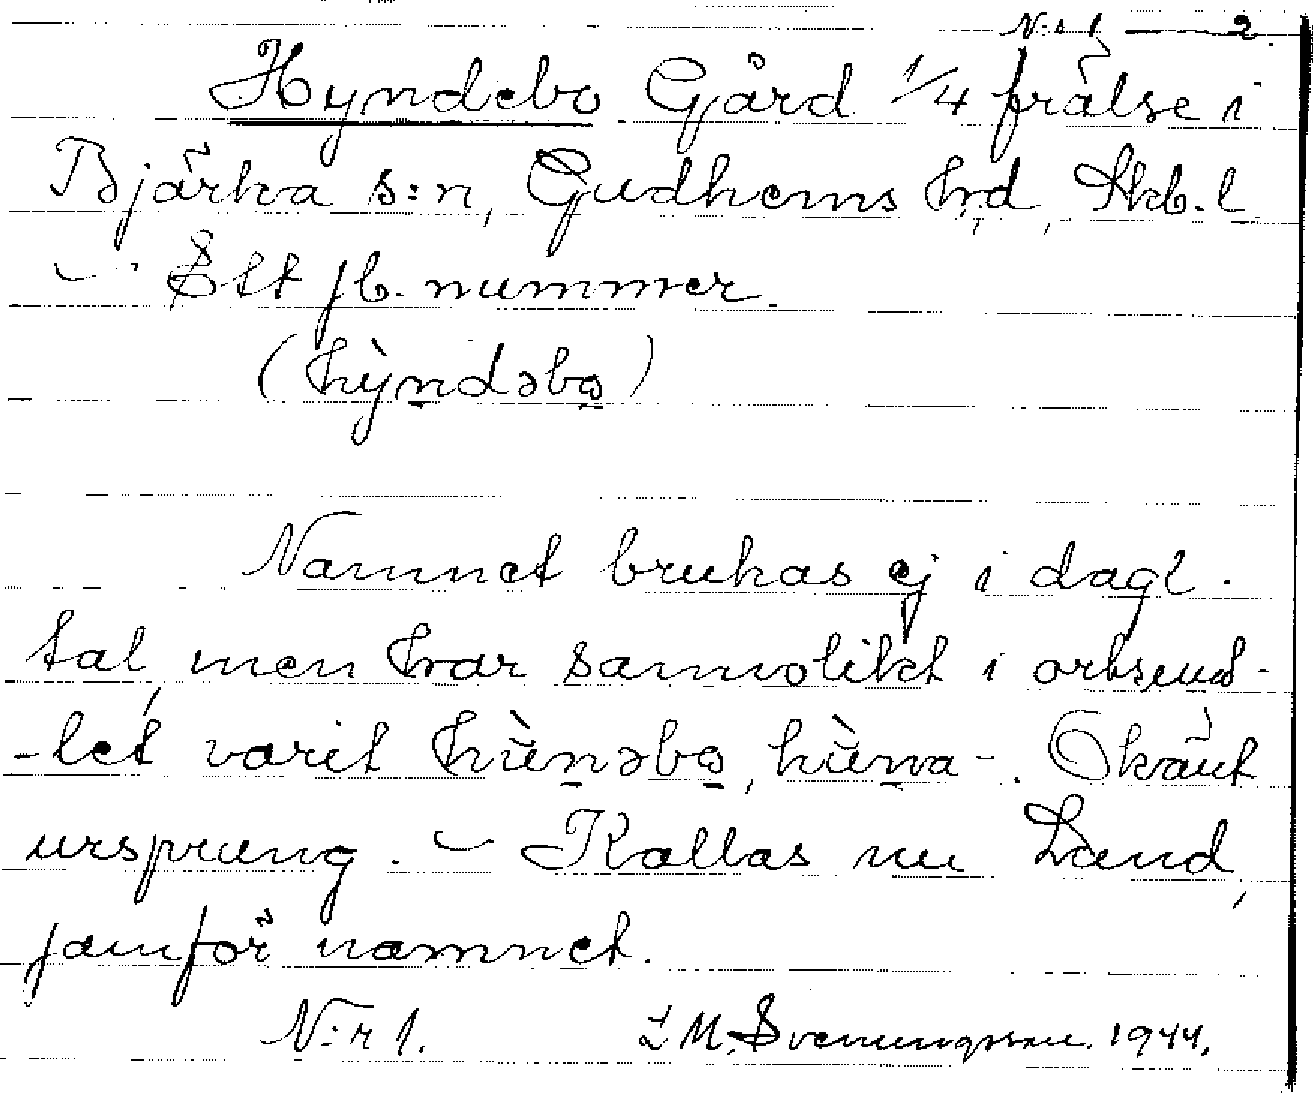 N:r 1 — 2.
Hyndebo Gård 1/4 frälse i
Bjärka s:n, Gudhems hrd, Skb. l
– Ett jb. nummer.
(hỳndəbo̠)
Namnet brukas ej i dagl.
tal, men har sannolikt i ortsuut-
-let varit hùnəbo̠, hùna-. Okänt
ursprung. – Kallas nu Lund,
jämför namnet.
N:r 1. L M. Svenungsson. 1944.